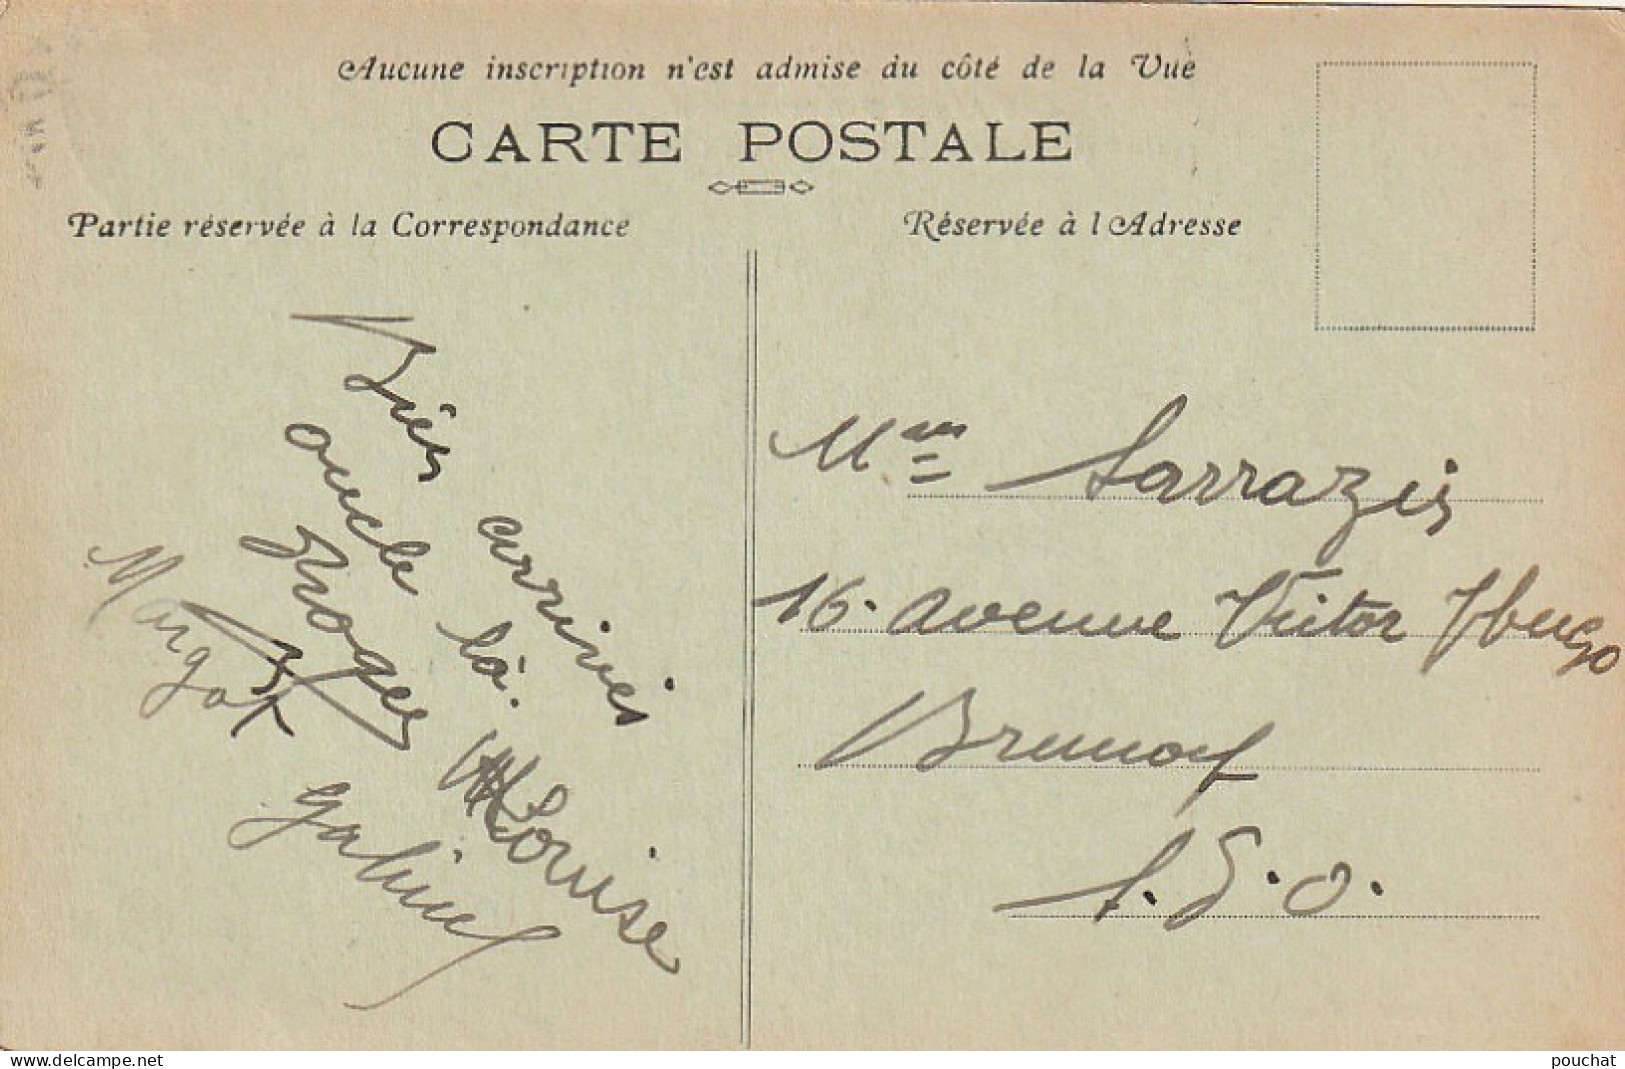 Aucune inscription n'est admise du côté de la Vue
CARTE POSTALE
Partie réservée à la Correspondance
Réservée à l'Adresse
Bien arrivés
oncle là.
Roger Louise
Margot
Gabriel
Mme Sarrazin
16. Avenue Victor Hugo
Brunoy
S. & O.
delcampe.net
pouchat